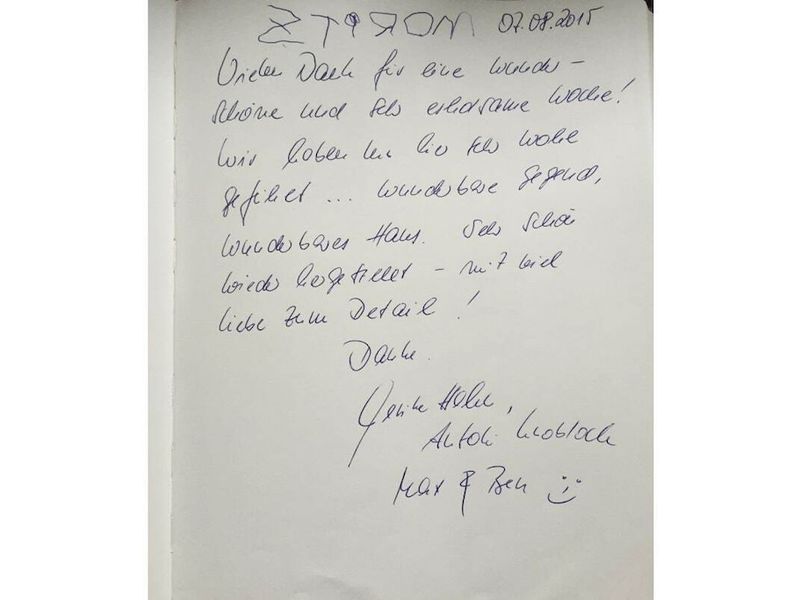 MORITS 07.08.2015
Vielen Dank für eine wunder-
schöne und sehr erholsame Woche!
Wir haben uns hier sehr wohl
gefühlt ... wunderbare Gegend,
wunderbares Haus. Sehr schön
wieder hergestellt - mit viel
Liebe zum Detail!
Danke.
Antoni Knobloch
Max & Ben